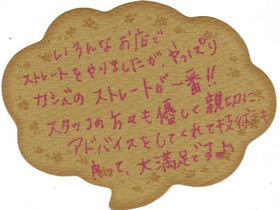 いろんなお店で
ストレートをやりましたが、やっぱり
カシベのストレートが一番!!
スタッフの方々も優しく親切に、
アドバイスをしてくれて技術も
良って、大満足ですよ